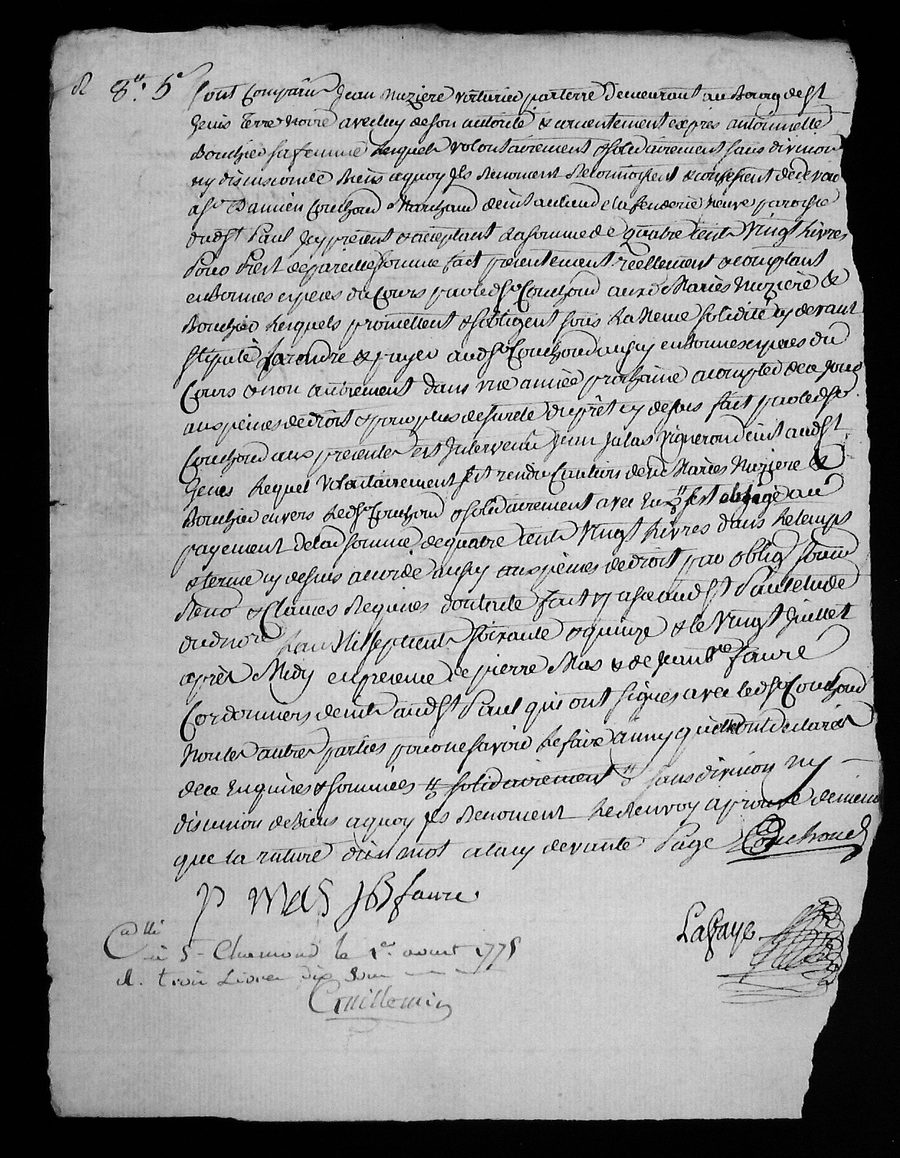 8 5e Sont Comparus Jean Muziere voiturier par terre demeurant au Bourg de St
Genis Terre Noire avec luy de son autorité & consentement exprès antoinette
Bouchier sa femme Lesquels volontairement & solidairement sans division
ny discussion de Biens a quoy Ils Renoncent Reconnoissent & confessent devoir
à Sr Damien Couchoud Marchand demt au lieu de la fenderie Neuve paroisse
dudit St Paul Icy présent & acceptant La somme de quatre cents vingt Livres
Pour Prêt de pareille somme fait présentement réellement & comptant
en Bonnes especes du Cours par led Sr Couchoud auxd Mariés Muzière &
Bouchier Lesquels promettent & s'obligent sous La Même solidité cy devant
stipulé La rendre & payer aud Sr Couchoud aussy en Bonnes especes du
Cours & non autrement dans une année prochaine a compter de ce jour
aux peines de droit & pour plus de sureté du prêt cy dessus fait par led Sr
Couchoud aux presentes est Intervenu Jean Jalas vigneron demt aud St
Genis Lequel volontairement s'est rendu Caution desd Mariés Muziere &
Bouchier envers Led Sr Couchoud & solidairement avec Eux s'est obligé au
payement de lad somme de quatre cents vingt Livres dans Le temps
& terme cy dessus accordé aussy aux peines de droit par oblig soum
Reno & Clauses Requises dont acte fait & passé aud St Paul etude
du dnore L'an Mil sept cent soixante & quinze & le vingt Juillet
après Midy en presence de pierre Mas & de Jean Bte faure
Cordonniers demt aud St Paul qui ont signés avec led Sr Couchoud
Non les autres parties pour ne savoir Le faire ainsy qu'elles ont declaré
de ce Enquises & sommées solidairement sans division ny
discussion de Biens a quoy Ils Renoncent Le Renvoy aprouvé de meme
que la rature d'un mot a la cy devante Page Couchoud
P MAS JB faure
Lafaye
à St Chamond le 1er aout 1775
R. trois Livres dix sous
Guillemin